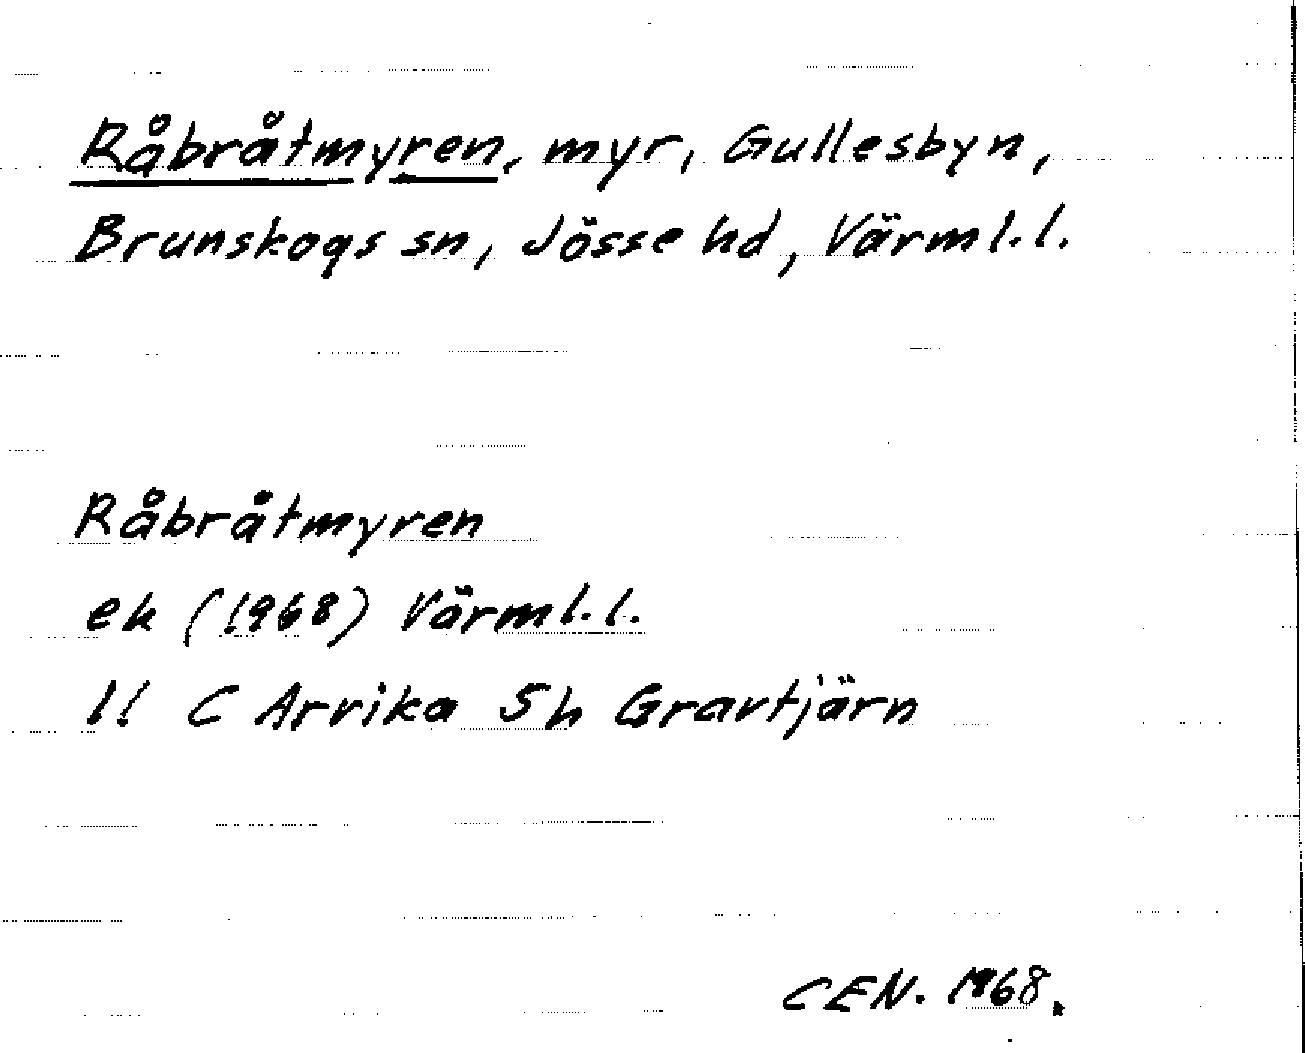 Råbråtmyren, myr, Gullesbyn,
Brunskogs sn, Jösse hd, Värml. l.
Råbråtmyren
ek (1968) Värml. l.
11 C Arvika 5h Gravtjärn
CEN. 1968.